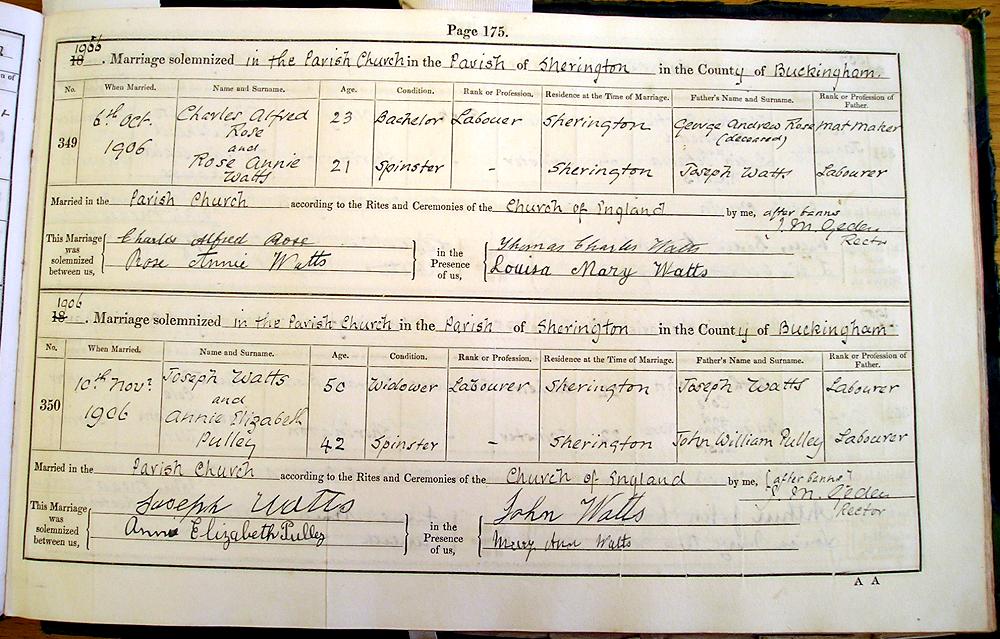 Page 175.
1906
18 . Marriage solemnized in the Parish Church in the Parish of Sherington in the County of Buckingham.
No. When Married. Name and Surname. Age. Condition. Rank or Profession. Residence at the Time of Marriage. Father's Name and Surname. Rank or Profession of Father.
349 6th Oct. 1906 Charles Alfred Rose 23 Bachelor Labourer Sherington George Andrew Rose (deceased) Mat maker
and
Rose Annie Watts 21 Spinster - Sherington Joseph Watts Labourer
Married in the Parish Church according to the Rites and Ceremonies of the Church of England by me, after banns
Rector
This Marriage was solemnized between us, Charles Alfred Rose in the Presence of us, Thomas Charles Watts
Rose Annie Watts Louisa Mary Watts
1906
18 . Marriage solemnized in the Parish Church in the Parish of Sherington in the County of Buckingham
No. When Married. Name and Surname. Age. Condition. Rank or Profession. Residence at the Time of Marriage. Father's Name and Surname. Rank or Profession of Father.
350 10th Novr. 1906 Joseph Watts 50 Widower Labourer Sherington Joseph Watts Labourer
and
Annie Elizabeth Pulley 42 Spinster - Sherington John William Pulley Labourer
Married in the Parish Church according to the Rites and Ceremonies of the Church of England by me, (after banns)
Rector
This Marriage was solemnized between us, Joseph Watts in the Presence of us, John Watts
Annie Elizabeth Pulley Mary Ann Watts
A A